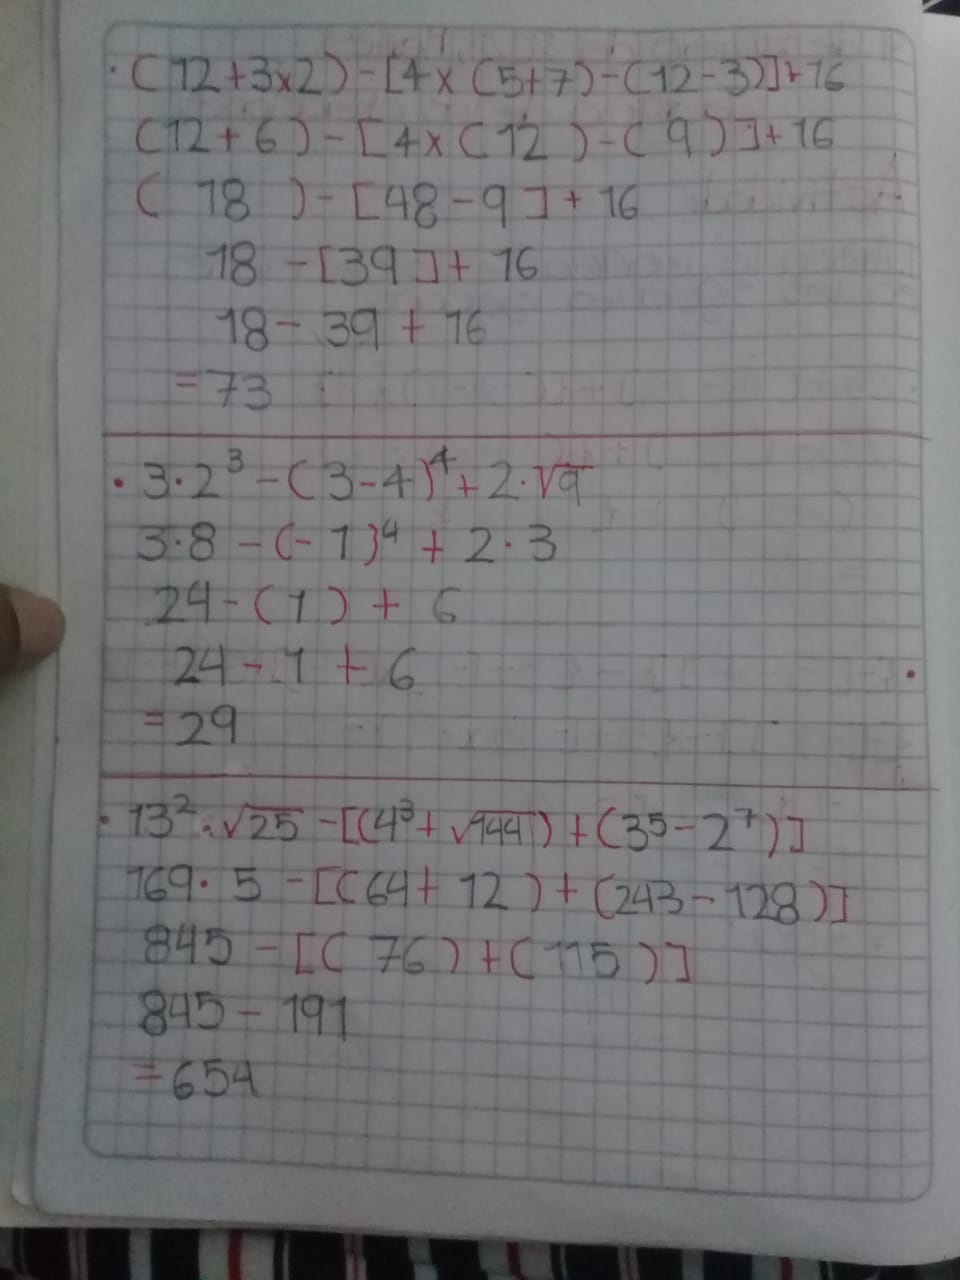 · (12+3×2) - [4×(5+7)-(12-3)]+16
(12+6) - [4×(12) - (9)]+16
(18) - [48-9]+16
18 - [39]+16
18 - 39 + 16
= 73
· 3·2³ - (3-4)⁴ + 2·√9
3·8 - (-1)⁴ + 2·3
24 - (1) + 6
24 - 1 + 6
= 29
· 13²·√25 - [(4³+√144) + (3⁵-2⁷)]
169·5 - [(64+12) + (243-128)]
845 - [(76) + (115)]
845 - 191
= 654